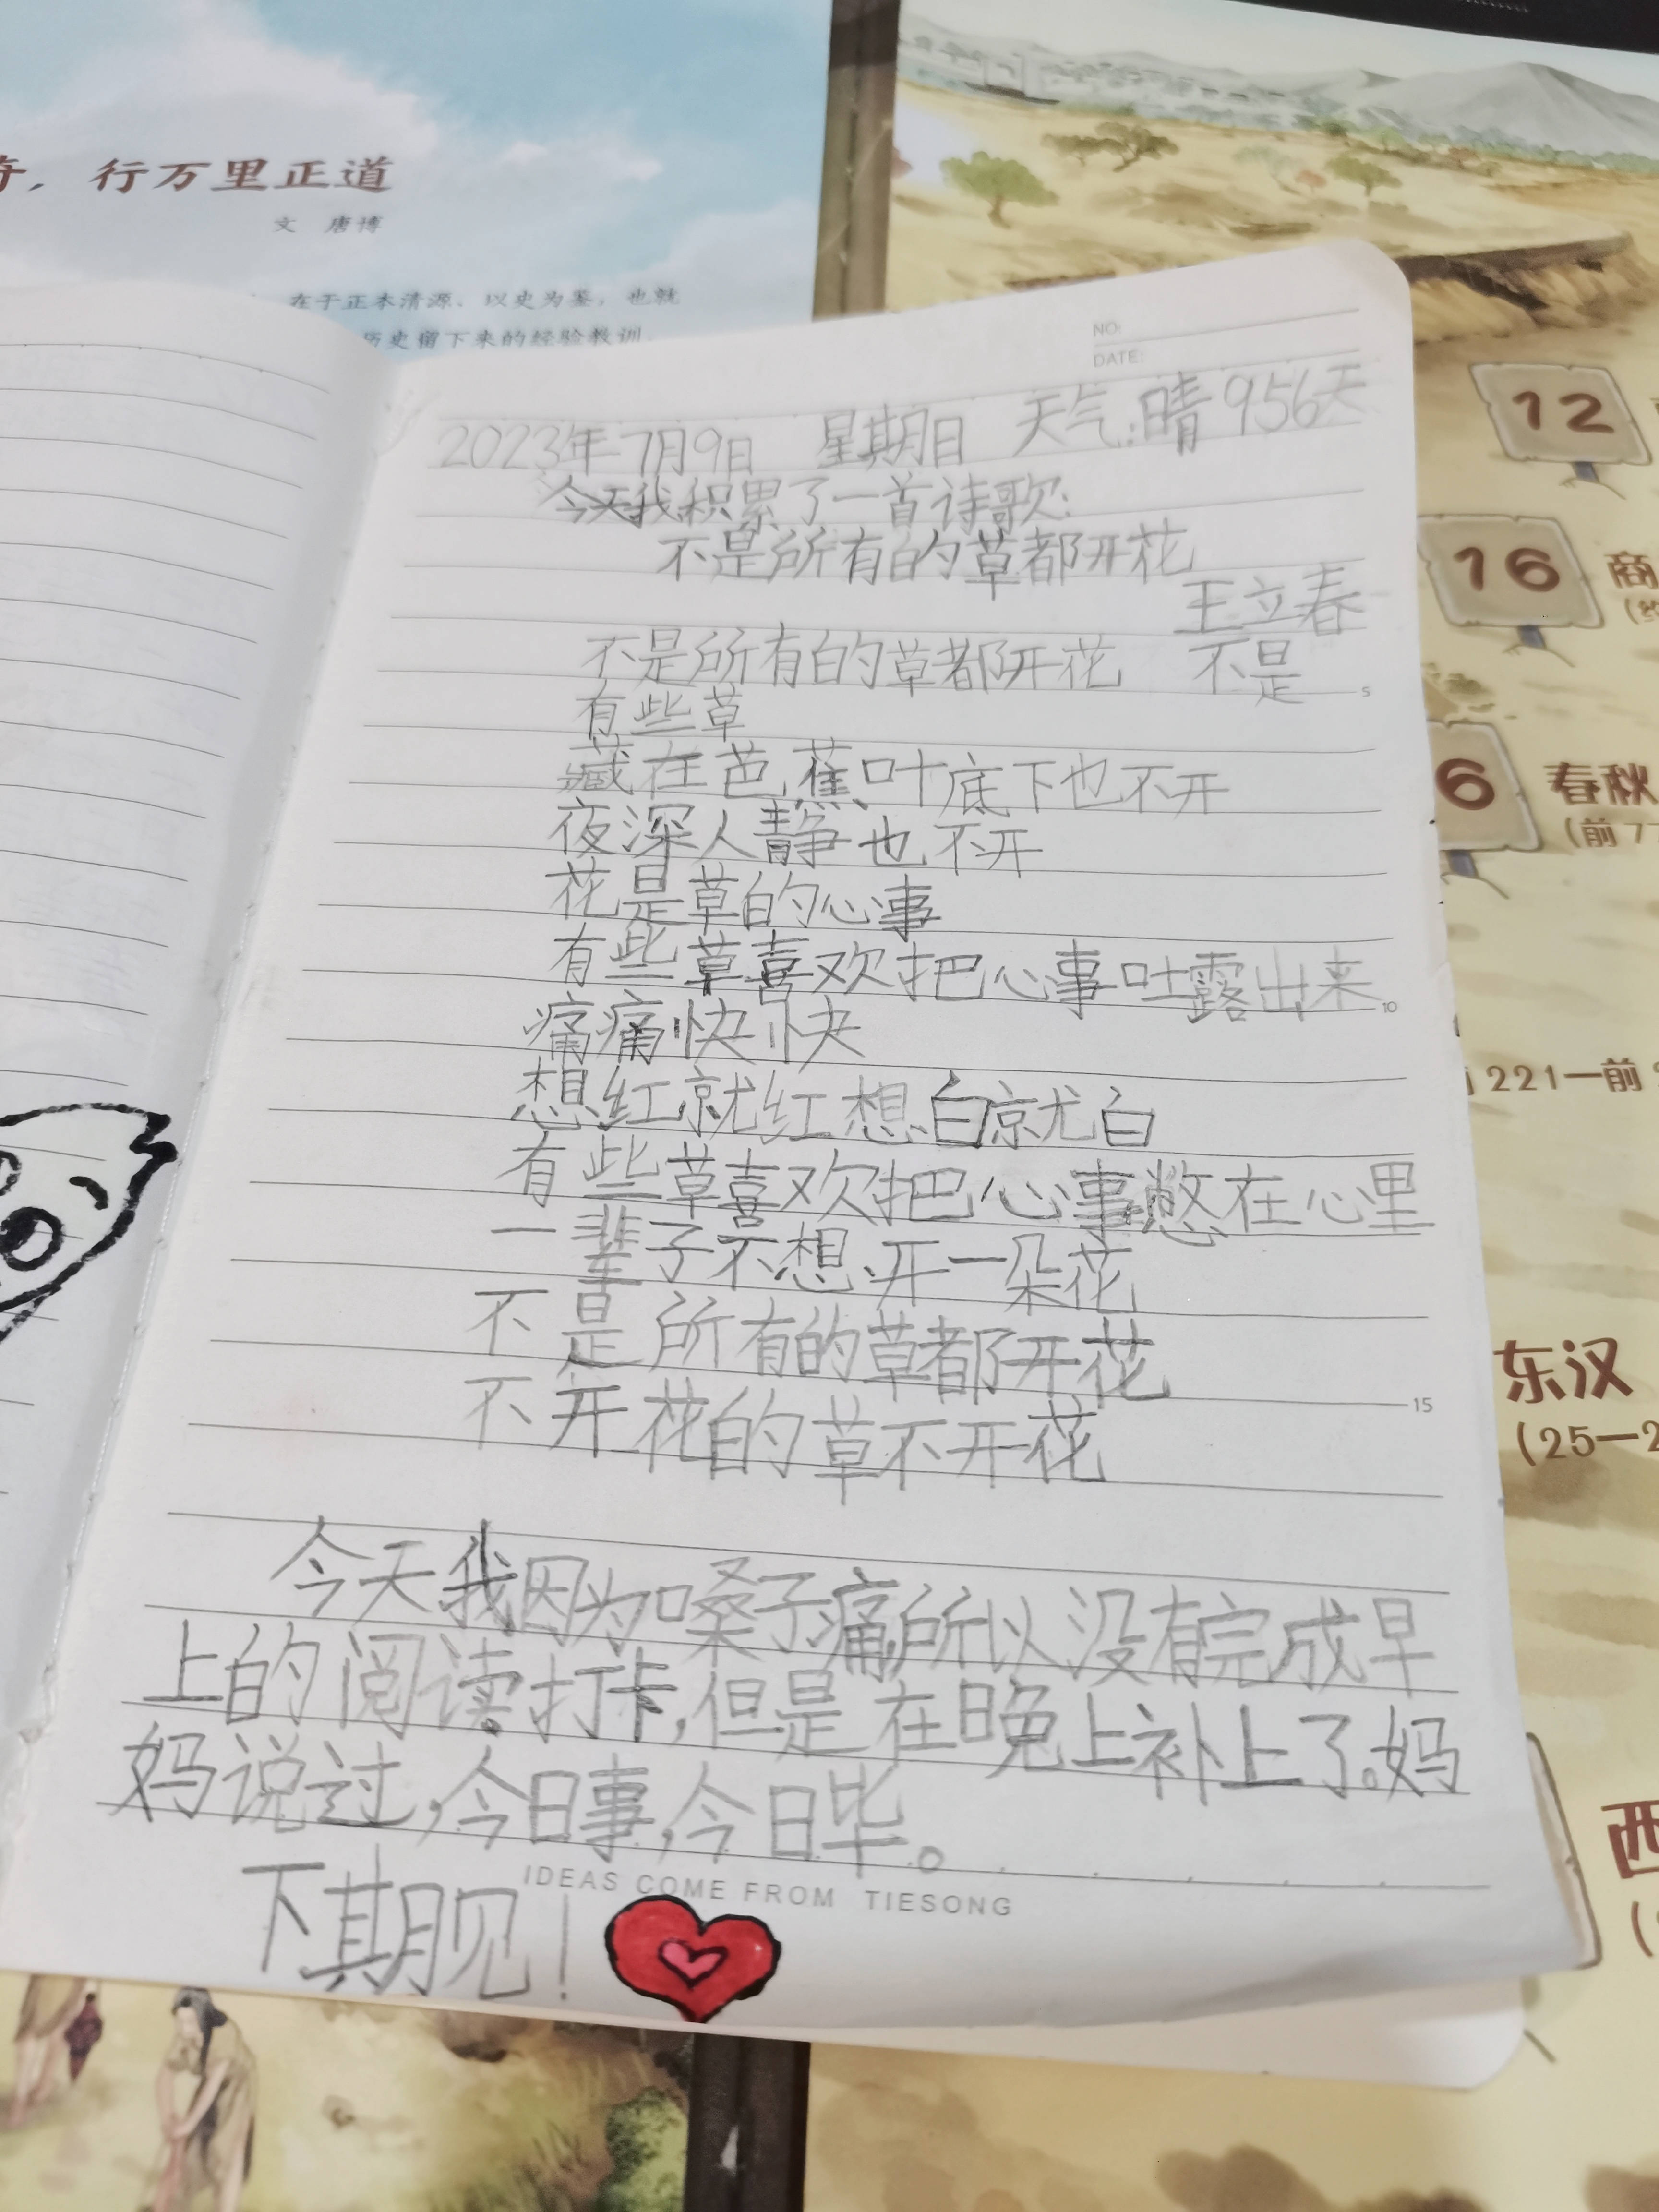 行万里正道
文 唐博
在于正本清源、以史为鉴，也就
历史留下来的经验教训。
NO:
DATE:
2023年7月9日 星期日 天气:晴 956天
今天我积累了一首诗歌:
不是所有的草都开花
王立春
不是所有的草都开花 不是
有些草
藏在芭蕉叶底下也不开
夜深人静也不开
花是草的心事
有些草喜欢把心事吐露出来
痛痛快快
想红就红想白就白
有些草喜欢把心事憋在心里
一辈子不想开一朵花
不是所有的草都开花
不开花的草不开花
今天我因为嗓子痛所以没有完成早
上的阅读打卡,但是在晚上补上了。妈
妈说过,今日事,今日毕。
IDEAS COME FROM TIESONG
下期见!
5
10
15
12
16
商
6
春秋
(前77
221—前
东汉
(25—2
西